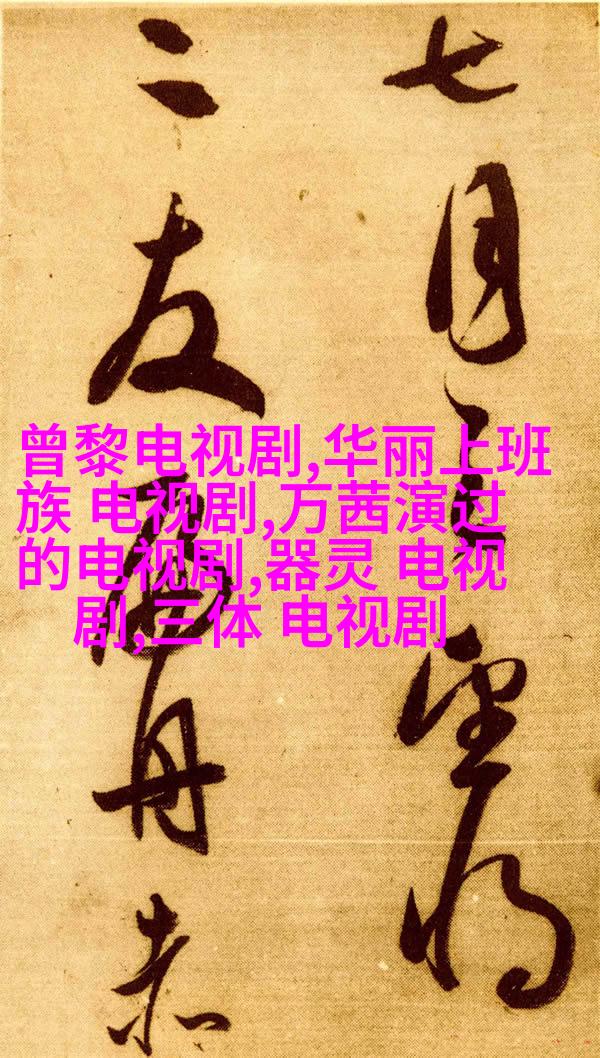 七月之望将
二友舟赤
曾黎电视剧,华丽上班
族 电视剧,万茜演过
的电视剧,器灵 电视
剧,三体 电视剧